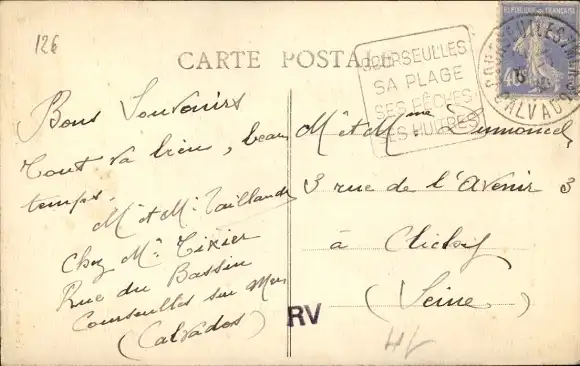 126
CARTE POSTALE
COURSEULLES
SA PLAGE
SES PÊCHES
SES HUITRES
REPUBLIQUE FRANÇAISE
40
CALVADOS
Bons Souvenirs
Tout va bien, beau
temps.
Mr et Me Taillandi
Chez Mr Tixier
Rue du Bassin
Courseulles sur Mer
(Calvados)
Mr et Mme
3 rue de l'Avenir 3
à Clichy
(Seine)
RV